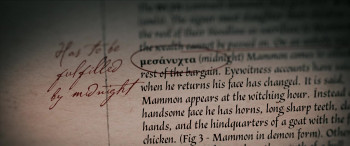 the rest of their
the wealth cannot be
Has to be
fulfilled
by midnight
μεσάνυχτα (midnight) Mammon comes
rest of the bargain. Eyewitness accounts have
when he returns his face has changed. It is said,
Mammon appears at the witching hour. Instead
handsome face he has horns, long sharp teeth,
hands, and the hindquarters of a goat with the
chicken. (Fig 3 - Mammon in demon form). Othe